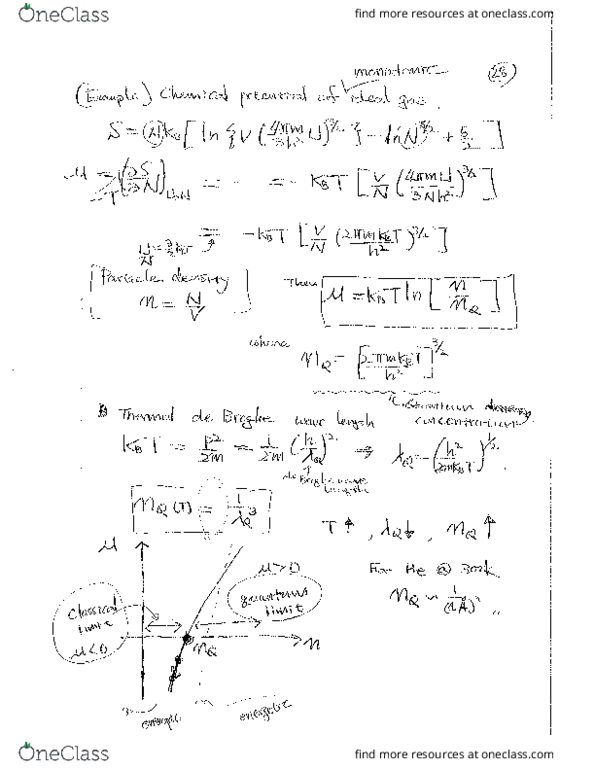 OneClass
find more resources at oneclass.com
28
monatomic
(Example) Chemical potential of ideal gas.
S = N k_B [ ln { V (4πm/3h² U)^{3/2} } − ln N^{5/2} + 5/2 ]
μ = −T (∂S/∂N)_{U,V} = ⋯ = − k_B T [ V/N (4πmU/3Nh²)^{3/2} ]
= −k_B T [ V/N (2πmk_BT/h²)^{3/2} ]
Particle density
n = N/V
Then
μ = k_B T ln [ n/n_Q ]
where
n_Q = [ 2πmk_BT/h² ]^{3/2}
concentration
Thermal de Broglie wave length
k_B T = p²/2m = 1/2m (h/λ_Q)² ⇒ λ_Q = (h²/2mk_BT)^{1/2}
de Broglie wave length
n_Q (T) = 1/λ_Q³
T ↑, λ_Q ↓, n_Q ↑
For He @ 300k
μ
μ > 0
quantum limit
Classical limit
μ < 0
n_Q
n
entropic
energetic
OneClass
find more resources at oneclass.com